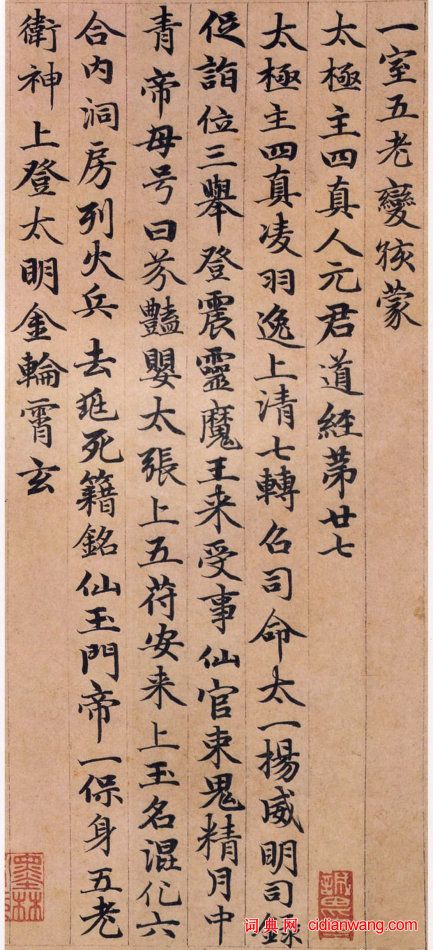 一室五老變孩蒙
太極主四真人元君道經苐廿七
太極主四真凌羽逸上清七轉召司命太一揚威明司錄
促詣位三舉登震靈魔王来受事仙官束鬼精月中
青帝母号曰芬豔嬰太張上五苻安来上玉名混化六
合内洞房列火兵去死籍銘仙玉門帝一保身五老
衛神上登太明金輪霄玄
墨林
词典网 cidianwang.com